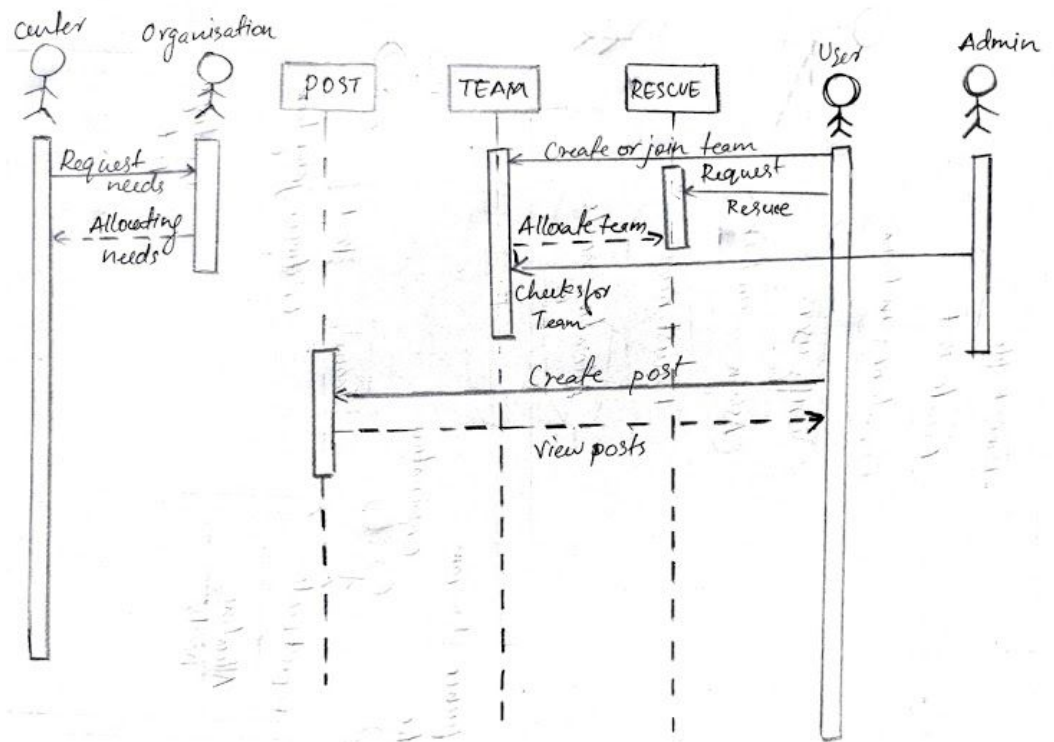 Center
Organisation
POST
TEAM
RESCUE
User
Admin
Request
needs
Allocating
needs
Create or join team
Request
Rescue
Allocate team
Checks for
Team
Create post
View posts